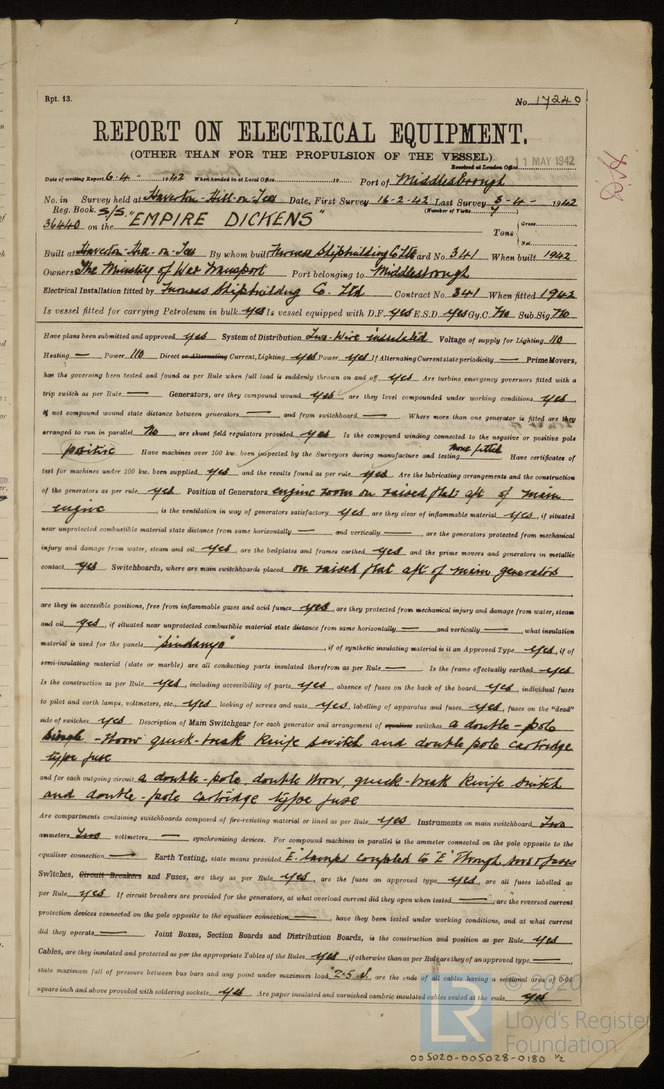 Rpt. 13.
No. 17240
REPORT ON ELECTRICAL EQUIPMENT.
(OTHER THAN FOR THE PROPULSION OF THE VESSEL)
11 MAY 1942
Received at London Office
Date of writing Report 6-4- 1942 When handed in at Local Office 19 Port of Middlesbrough
No. in Survey held at Haverton-Hill-on-Tees Date, First Survey 16-2-42 Last Survey 3-4- 1942
Reg. Book. (Number of Visits
36440 on the S/S. "EMPIRE DICKENS" Tons { Gross
Net
Built at Haverton-Hill-on-Tees By whom built Furness Shipbuilding Co Ltd Yard No. 341 When built 1942
Owners The Ministry of War Transport Port belonging to Middlesbrough
Electrical Installation fitted by Furness Shipbuilding Co. Ltd Contract No. 341 When fitted 1942
Is vessel fitted for carrying Petroleum in bulk yes Is vessel equipped with D.F. yes E.S.D. yes Gy.C. No Sub.Sig. No
Have plans been submitted and approved yes System of Distribution Two-Wire insulated Voltage of supply for Lighting 110
Heating — Power 110 Direct or Alternating Current, Lighting yes Power yes If Alternating Current state periodicity — Prime Movers,
has the governing been tested and found as per Rule when full load is suddenly thrown on and off yes Are turbine emergency governors fitted with a
trip switch as per Rule — Generators, are they compound wound yes, are they level compounded under working conditions yes,
if not compound wound state distance between generators — and from switchboard — Where more than one generator is fitted are they
arranged to run in parallel No, are shunt field regulators provided yes Is the compound winding connected to the negative or positive pole
positive Have machines over 100 kw. been inspected by the Surveyors during manufacture and testing None fitted Have certificates of
test for machines under 100 kw. been supplied yes and the results found as per rule yes Are the lubricating arrangements and the construction
of the generators as per rule yes Position of Generators engine room on raised flat aft of main
engine, is the ventilation in way of generators satisfactory yes are they clear of inflammable material yes, if situated
near unprotected combustible material state distance from same horizontally — and vertically —, are the generators protected from mechanical
injury and damage from water, steam and oil yes, are the bedplates and frames earthed yes and the prime movers and generators in metallic
contact yes Switchboards, where are main switchboards placed on raised flat aft of main generators
are they in accessible positions, free from inflammable gases and acid fumes yes, are they protected from mechanical injury and damage from water, steam
and oil yes, if situated near unprotected combustible material state distance from same horizontally — and vertically —, what insulation
material is used for the panels "Sindanyo", if of synthetic insulating material is it an Approved Type yes, if of
semi-insulating material (slate or marble) are all conducting parts insulated therefrom as per Rule — Is the frame effectually earthed yes
Is the construction as per Rule yes, including accessibility of parts yes, absence of fuses on the back of the board yes, individual fuses
to pilot and earth lamps, voltmeters, etc., yes locking of screws and nuts yes, labelling of apparatus and fuses yes, fuses on the "dead"
side of switches yes Description of Main Switchgear for each generator and arrangement of equaliser switches a double-pole
single-throw quick-break knife switch and double pole cartridge
type fuse
and for each outgoing circuit a double-pole, double throw, quick-break knife switch
and double-pole cartridge type fuse
Are compartments containing switchboards composed of fire-resisting material or lined as per Rule yes Instruments on main switchboard Two
ammeters Two voltmeters — synchronising devices. For compound machines in parallel is the ammeter connected to the pole opposite to the
equaliser connection — Earth Testing, state means provided "E" lamps coupled to "E" through and fuses
Switches, Circuit Breakers and Fuses, are they as per Rule yes, are the fuses an approved type yes, are all fuses labelled as
per Rule yes If circuit breakers are provided for the generators, at what overload current did they open when tested —, are the reversed current
protection devices connected on the pole opposite to the equaliser connection —, have they been tested under working conditions, and at what current
did they operate — Joint Boxes, Section Boards and Distribution Boards, is the construction and position as per Rule yes
Cables, are they insulated and protected as per the appropriate Tables of the Rules yes, if otherwise than as per Rule are they of an approved type —,
state maximum fall of pressure between bus bars and any point under maximum load 2·5 v., are the ends of all cables having a sectional area of 0·04
square inch and above provided with soldering sockets yes Are paper insulated and varnished cambric insulated cables sealed at the ends yes
© 2020
LR
Lloyd's Register
Foundation
005020-005028-0180 1/2